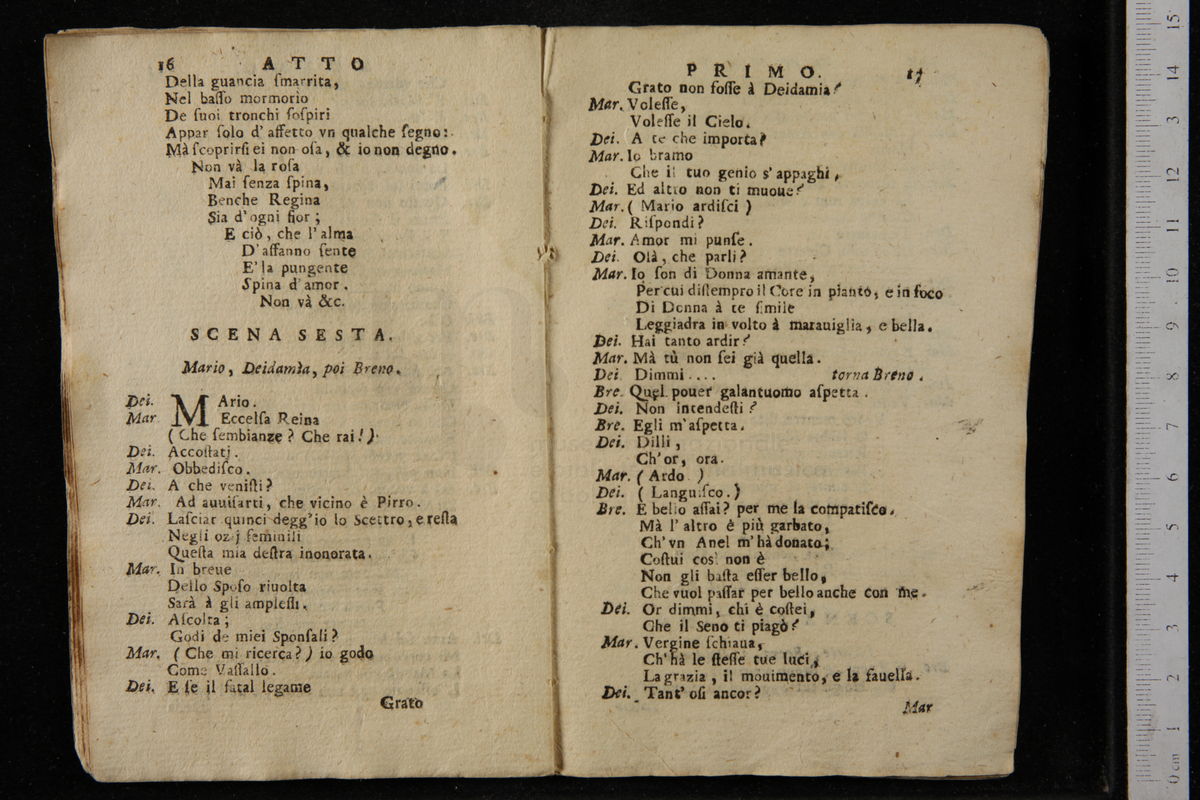 16 ATTO
Della guancia ſmarrita,
Nel baſſo mormorìo
De ſuoi tronchi ſoſpiri
Appar ſolo d' affetto vn qualche ſegno:
Mà ſcoprirſi ei non oſa, & io non degno.
Non và la roſa
Mai ſenza ſpina,
Benche Regina
Sia d' ogni fior ;
E ciò, che l' alma
D' affanno ſente
E' la pungente
Spina d' amor.
Non và &c.
SCENA SESTA.
Mario, Deidamìa, poi Breno.
Dei. MArio.
Mar Eccelſa Reina
( Che ſembianze ? Che rai! )
Dei. Accoſtati.
Mar. Obbediſco.
Dei. A che veniſti?
Mar. Ad auuiſarti, che vicino è Pirro.
Dei. Laſciar quinci degg'io lo Scettro, e reſta
Negli ozij feminili
Queſta mia deſtra inonorata.
Mar. In breue
Dello Spoſo riuolta
Sarà à gli ampleſſi.
Dei. Aſcolta ;
Godi de miei Sponſali?
Mar. ( Che mi ricerca? ) io godo
Come Vaſſallo.
Dei. E ſe il fatal legame
Grato
PRIMO. 17
Grato non foſſe à Deidamia?
Mar. Voleſſe,
Voleſſe il Cielo.
Dei. A te che importa?
Mar. Io bramo
Che il tuo genio s' appaghi,
Dei. Ed altro non ti muoue?
Mar. ( Mario ardiſci )
Dei. Riſpondi?
Mar. Amor mi punſe.
Dei. Olà, che parli?
Mar. Io ſon di Donna amante,
Per cui diſtempro il Core in pianto, e in foco
Di Donna à te ſimile
Leggiadra in volto à marauiglia, e bella.
Dei. Hai tanto ardir?
Mar. Mà tù non ſei già quella.
Dei Dimmi.... torna Breno.
Bre. Quel pouer galantuomo aſpetta.
Dei. Non intendeſti?
Bre. Egli m'aſpetta.
Dei. Dilli,
Ch'or, ora.
Mar. ( Ardo )
Dei. ( Languiſco. )
Bre. E bello aſſai? per me la compatiſco.
Mà l' altro è più garbato,
Ch'vn Anel m'hà donato;
Coſtui così non è
Non gli baſta eſſer bello,
Che vuol paſſar per bello anche con me.
Dei. Or dimmi, chi è coſtei,
Che il Seno ti piagò?
Mar. Vergine ſchiaua,
Ch'hà le ſteſſe tue luci,
La grazia, il mouimento, e la fauella.
Dei. Tant' oſi ancor?
Mar
0 cm 1 2 3 4 5 6 7 8 9 10 11 12 13 14 15